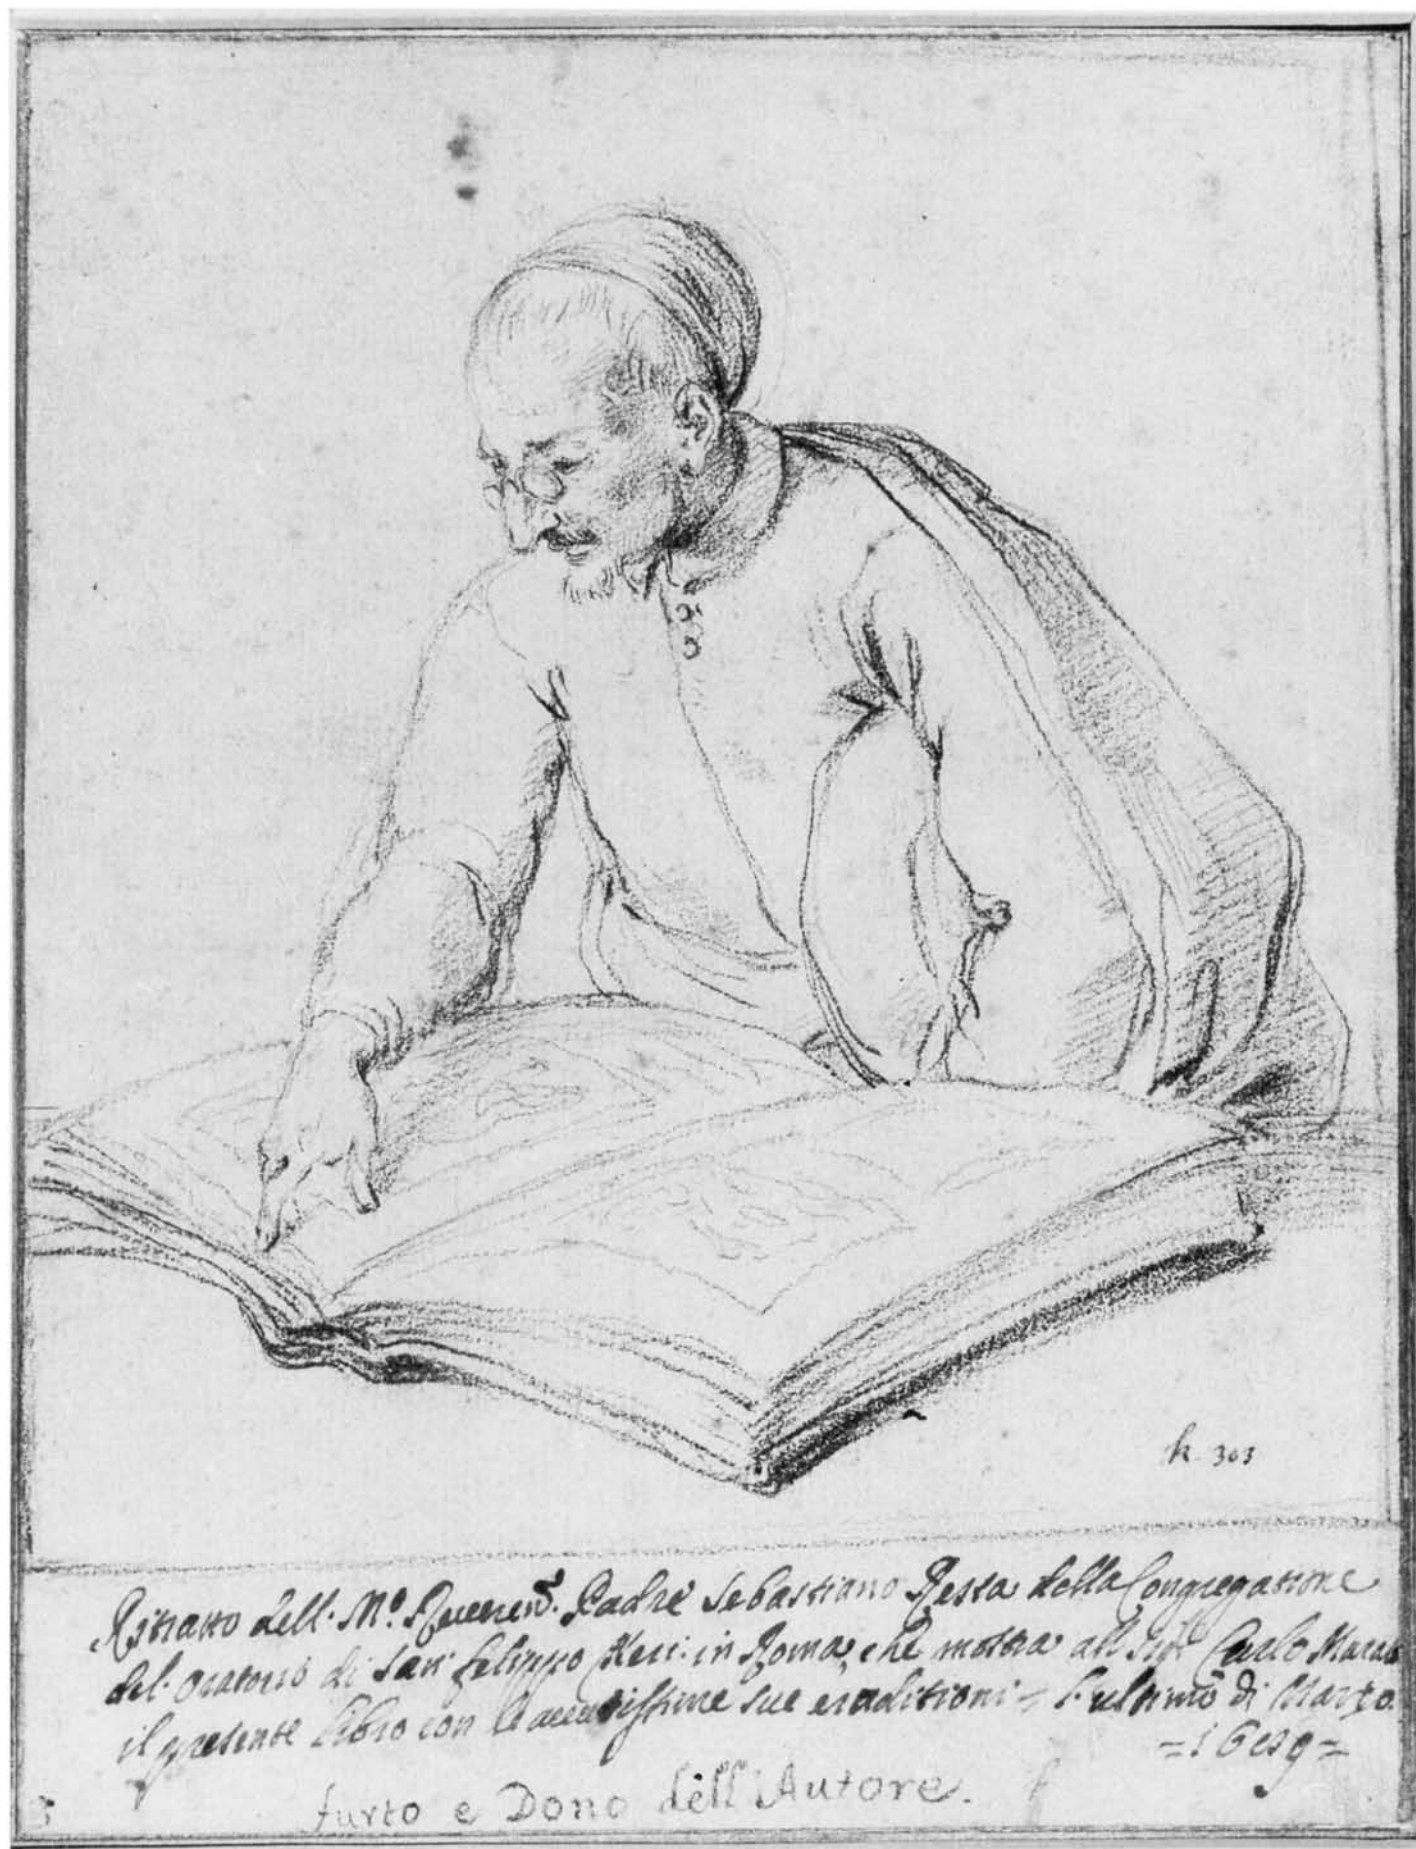 k. 303
Ritratto dell. Mº. Reveren. Padre Sebastiano Resta della Congregatione
del. oratorio di San felippo Neri in Roma, che mostra all sigr Carlo Marat
il presente libro con le sue eruditioni = l'ultimo di Marzo.
furto e Dono dell'Autore.